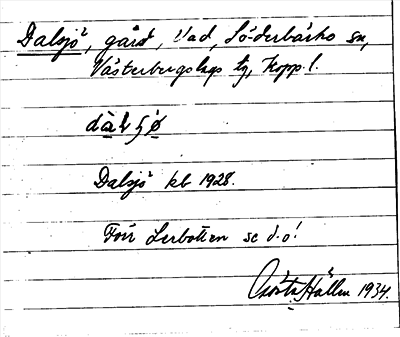 Dalsjö, gård, Vad, Söderbärke sn,
Västerbergslags tg, Kopp. l.
Dalsjö kb 1928.
Förr Lerbotten se d.o!
Gösta Hallén 1934.